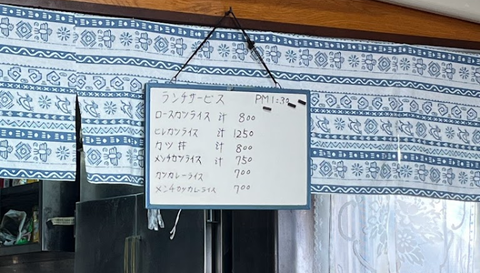 ランチサービス PM1:30
ロースカツライス 汁 800
ヒレカツライス 汁 1250
カツ丼 汁 800
メンチカツライス 汁 750
カツカレーライス 700
メンチカツカレライス 700